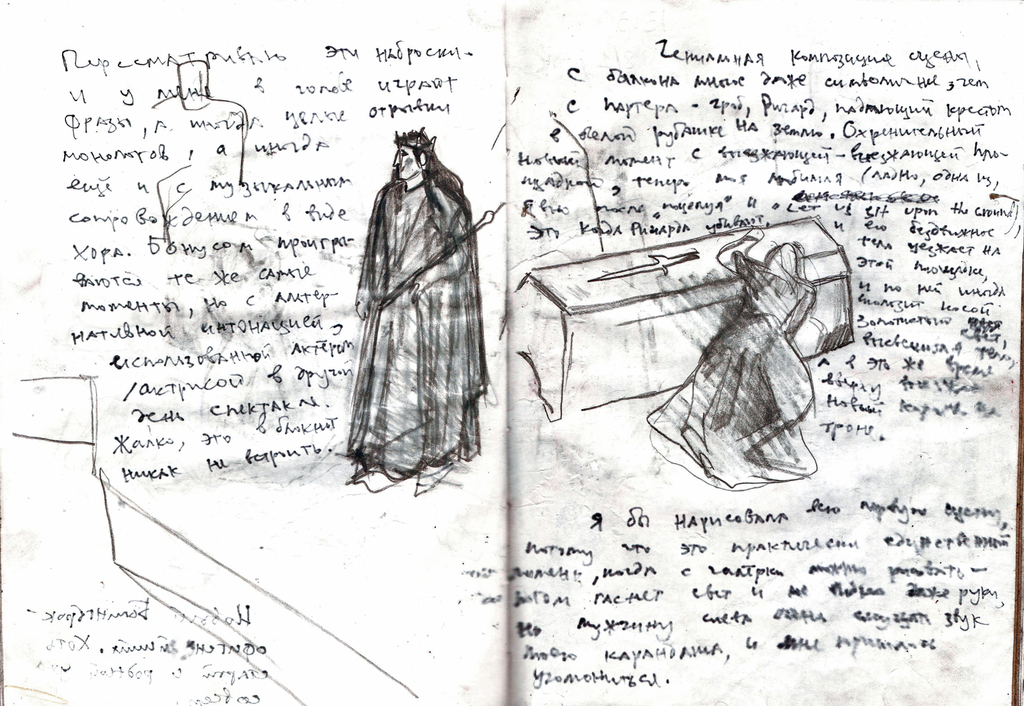 Пересматриваю эти наброски -
и у меня в голове играют
фразы, а иногда целые отрывки
монологов, а иногда
ещё и с музыкальным
сопровождением в виде
хора. Бонусом проигры-
ваются те же самые
моменты, но с альтер-
нативной интонацией,
использованной актёром
/актрисой в другой
день спектакля.
Жалко, это в блокнот
никак не встроить.
Новый Болингброк -
офигительнейший. Хоть
старый и родной уже
совсем.
Гениальная композиция сцены,
с балкона многое даже символичнее, чем
с партера - гроб, Ричард, падающий крестом
в белой рубашке на землю. Охренительный
новый момент с выезжающей-въезжающей пло-
щадкой, теперь моя любимая (ладно, одна из,
я вру после "поцелуя" и "Let us sit upon the ground"),
это когда Ричарда убивают, и его бездвижное
тело уезжает на
этой площадке,
и по ней иногда
скользит косой
золотистый свет,
тело,
а в это же время
вверху
новый король на
троне.
Я бы нарисовала всю первую сцену,
потому что это практически единственный
момент, когда с галёрки можно рисовать -
потом гаснет свет и не видно даже руки,
но мужчину слева звук
моего карандаша, и мне пришлось
угомониться.